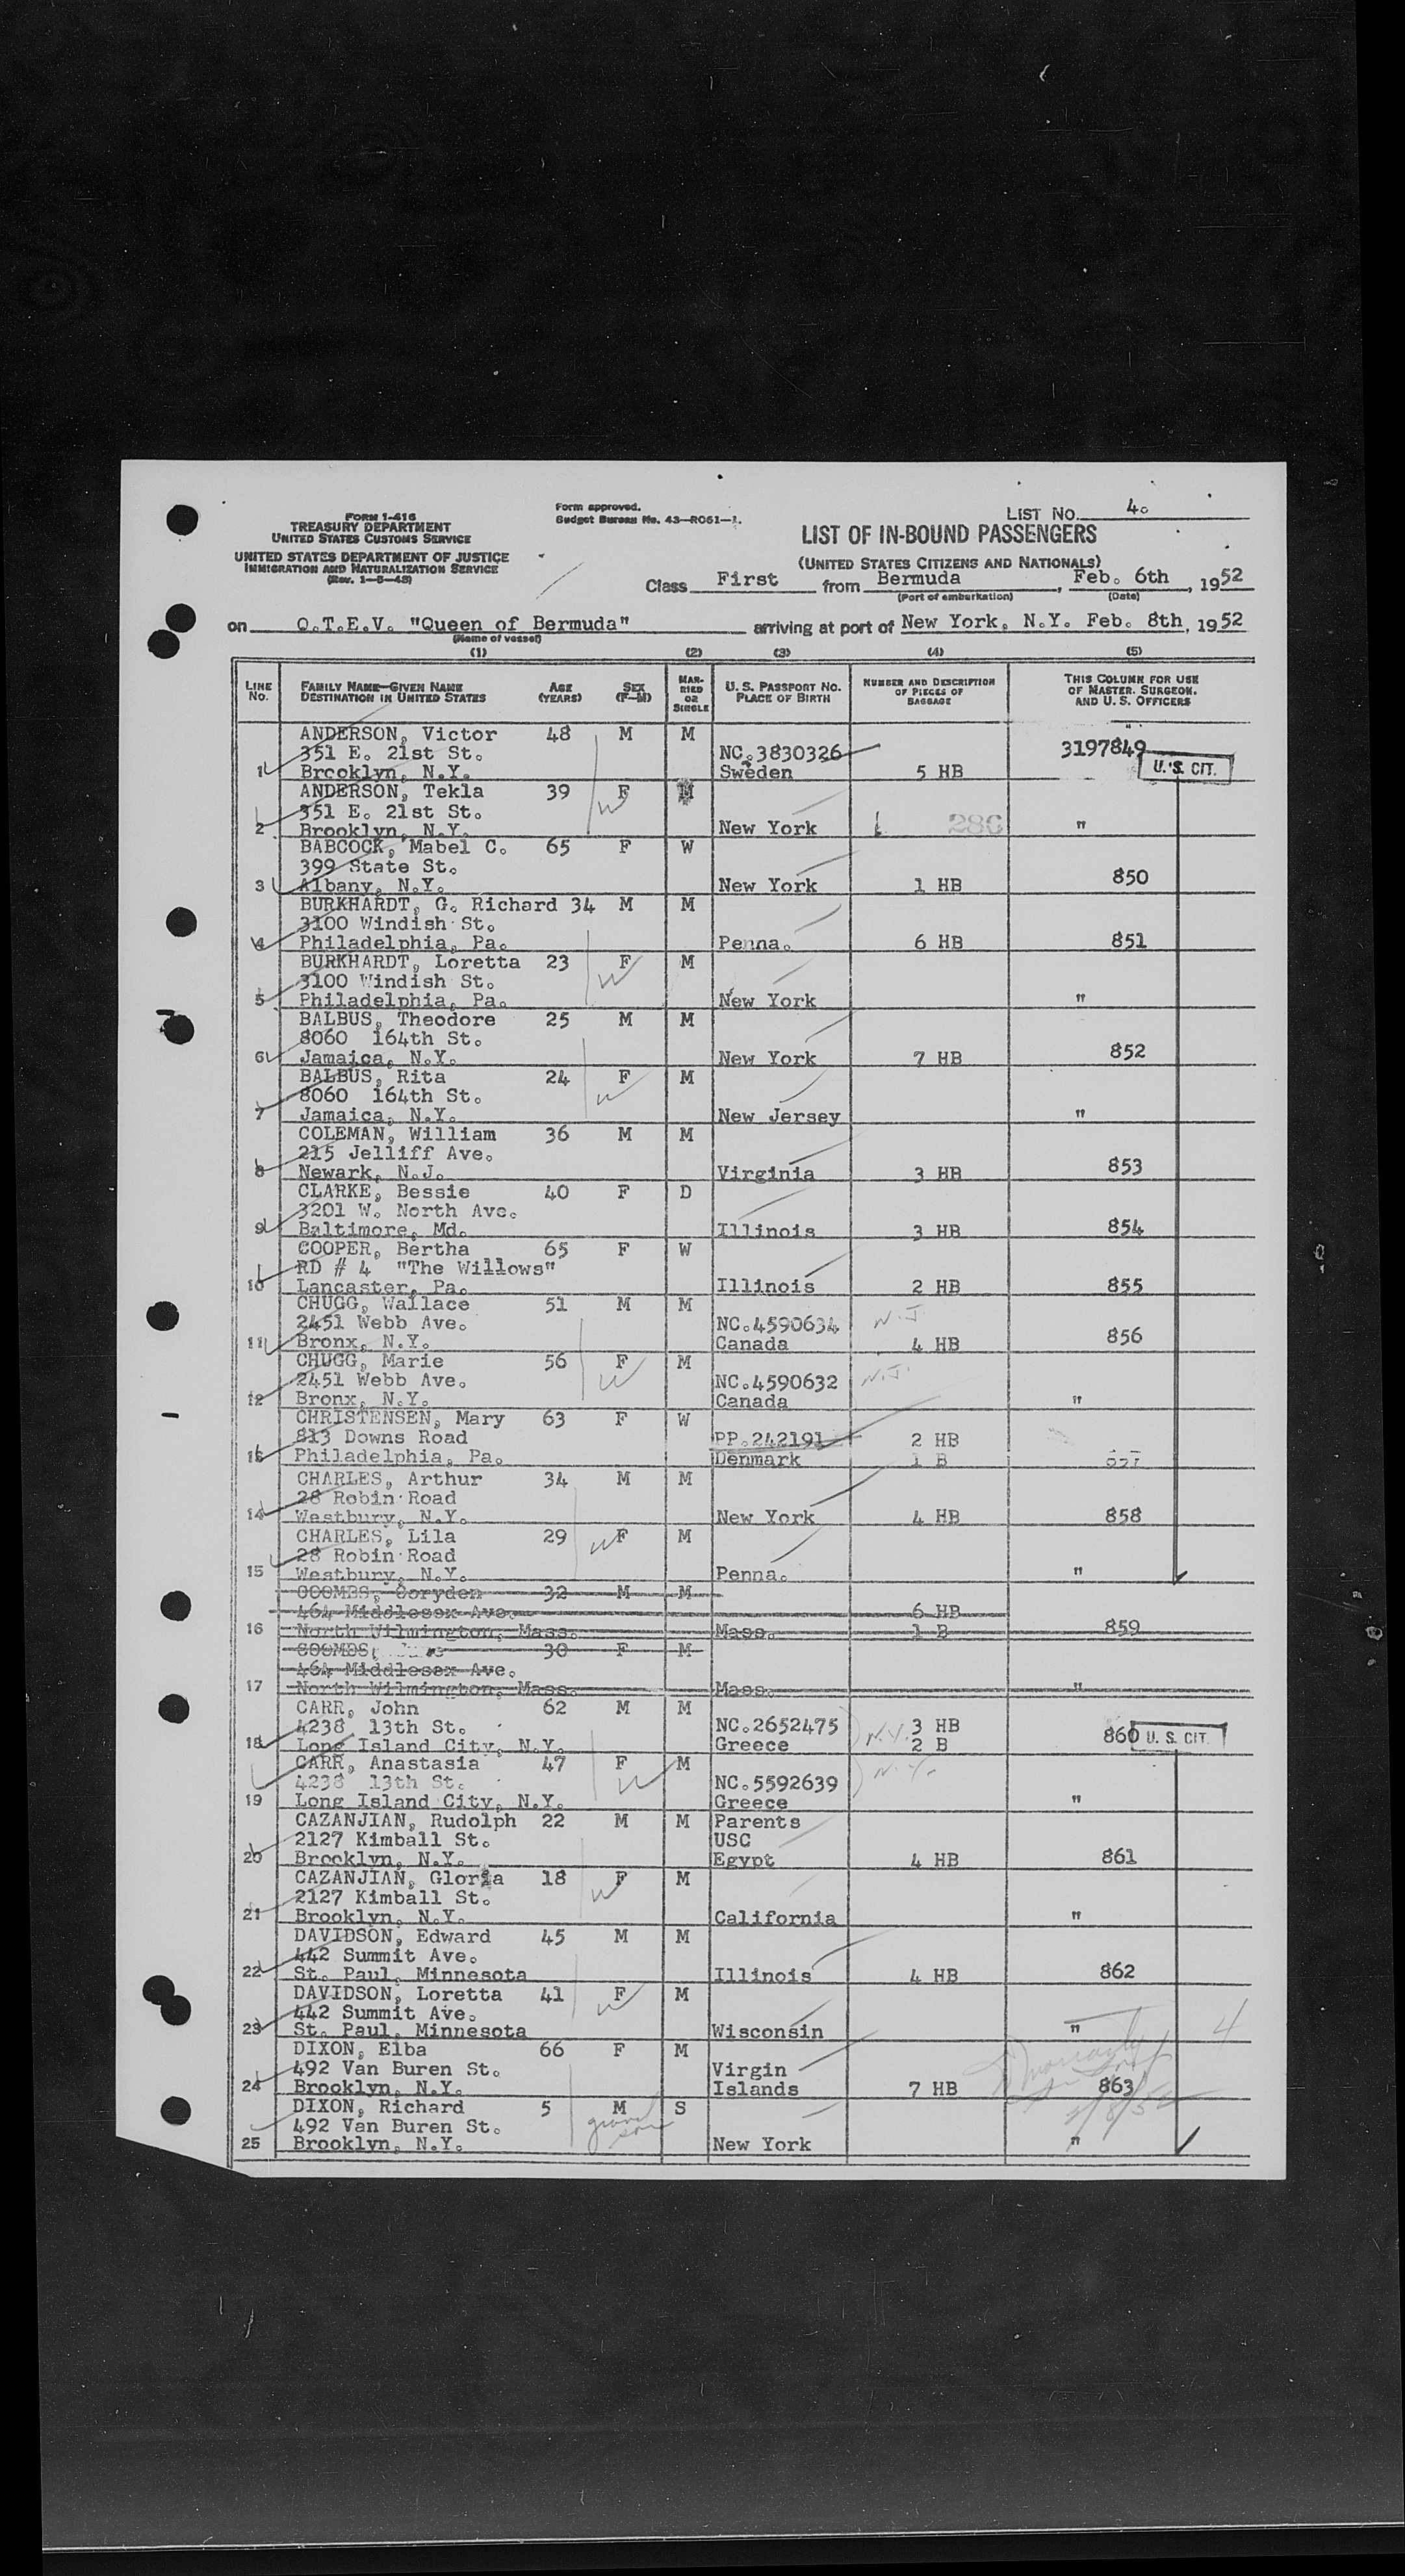 FORM I-416
TREASURY DEPARTMENT
UNITED STATES CUSTOMS SERVICE
UNITED STATES DEPARTMENT OF JUSTICE
IMMIGRATION AND NATURALIZATION SERVICE
(Rev. 1-5-48)
Form approved.
Budget Bureau No. 43-R061-1.
LIST NO. 4.
LIST OF IN-BOUND PASSENGERS
(UNITED STATES CITIZENS AND NATIONALS)
Class First from Bermuda, Feb. 6th, 1952
(Port of embarkation) (Date)
on Q.T.E.V. "Queen of Bermuda" arriving at port of New York, N.Y. Feb. 8th, 1952
(Name of vessel)
(1) (2) (3) (4) (5)
LINE NO. FAMILY NAME—GIVEN NAME DESTINATION IN UNITED STATES AGE (YEARS) SEX (F—M) MARRIED OR SINGLE U. S. PASSPORT NO. PLACE OF BIRTH NUMBER AND DESCRIPTION OF PIECES OF BAGGAGE THIS COLUMN FOR USE OF MASTER, SURGEON, AND U. S. OFFICERS
ANDERSON, Victor 48 M M
351 E. 21st St. NC.3830326 3197849
1 Brooklyn, N.Y. Sweden 5 HB U. S. CIT.
ANDERSON, Tekla 39 F M
351 E. 21st St. W
2 Brooklyn, N.Y. New York 280 "
BABCOCK, Mabel C. 65 F W
399 State St.
3 Albany, N.Y. New York 1 HB 850
BURKHARDT, G. Richard 34 M M
3100 Windish St.
4 Philadelphia, Pa. Penna. 6 HB 851
BURKHARDT, Loretta 23 F M
3100 Windish St. W
5 Philadelphia, Pa. New York "
BALBUS, Theodore 25 M M
8060 164th St.
6 Jamaica, N.Y. New York 7 HB 852
BALBUS, Rita 24 F M
8060 164th St. W
7 Jamaica, N.Y. New Jersey "
COLEMAN, William 36 M M
215 Jelliff Ave.
8 Newark, N.J. Virginia 3 HB 853
CLARKE, Bessie 40 F D
3201 W. North Ave.
9 Baltimore, Md. Illinois 3 HB 854
COOPER, Bertha 65 F W
RD # 4 "The Willows"
10 Lancaster, Pa. Illinois 2 HB 855
CHUGG, Wallace 51 M M
2451 Webb Ave. NC.4590634 N.J.
11 Bronx, N.Y. Canada 4 HB 856
CHUGG, Marie 56 F M
2451 Webb Ave. W NC.4590632 N.J.
12 Bronx, N.Y. Canada "
CHRISTENSEN, Mary 63 F W
813 Downs Road PP.242191 2 HB
13 Philadelphia, Pa. Denmark 1 B
CHARLES, Arthur 34 M M
28 Robin Road
14 Westbury, N.Y. New York 4 HB 858
CHARLES, Lila 29 W F M
28 Robin Road
15 Westbury, N.Y. Penna. "
COOMBS, Coryden 32 M M
464 Middlesex Ave. 6 HB
16 North Wilmington, Mass. Mass. 1 B 859
COOMBS, 30 F M
464 Middlesex Ave.
17 North Wilmington, Mass. Mass. "
CARR, John 62 M M
4238 13th St. NC.2652475 N.Y. 3 HB
18 Long Island City, N.Y. Greece 2 B 860 U. S. CIT.
CARR, Anastasia 47 F M
4238 13th St. W NC.5592639 N.Y.
19 Long Island City, N.Y. Greece "
CAZANJIAN, Rudolph 22 M M Parents
2127 Kimball St. USC
20 Brooklyn, N.Y. Egypt 4 HB 861
CAZANJIAN, Gloria 18 F M
2127 Kimball St. W
21 Brooklyn, N.Y. California "
DAVIDSON, Edward 45 M M
442 Summit Ave.
22 St. Paul, Minnesota Illinois 4 HB 862
DAVIDSON, Loretta 41 F M
442 Summit Ave. W
23 St. Paul, Minnesota Wisconsin " 4
DIXON, Elba 66 F M
492 Van Buren St. Virgin
24 Brooklyn, N.Y. Islands 7 HB 863
DIXON, Richard 5 M S 2/8/52
492 Van Buren St. grand son
25 Brooklyn, N.Y. New York "